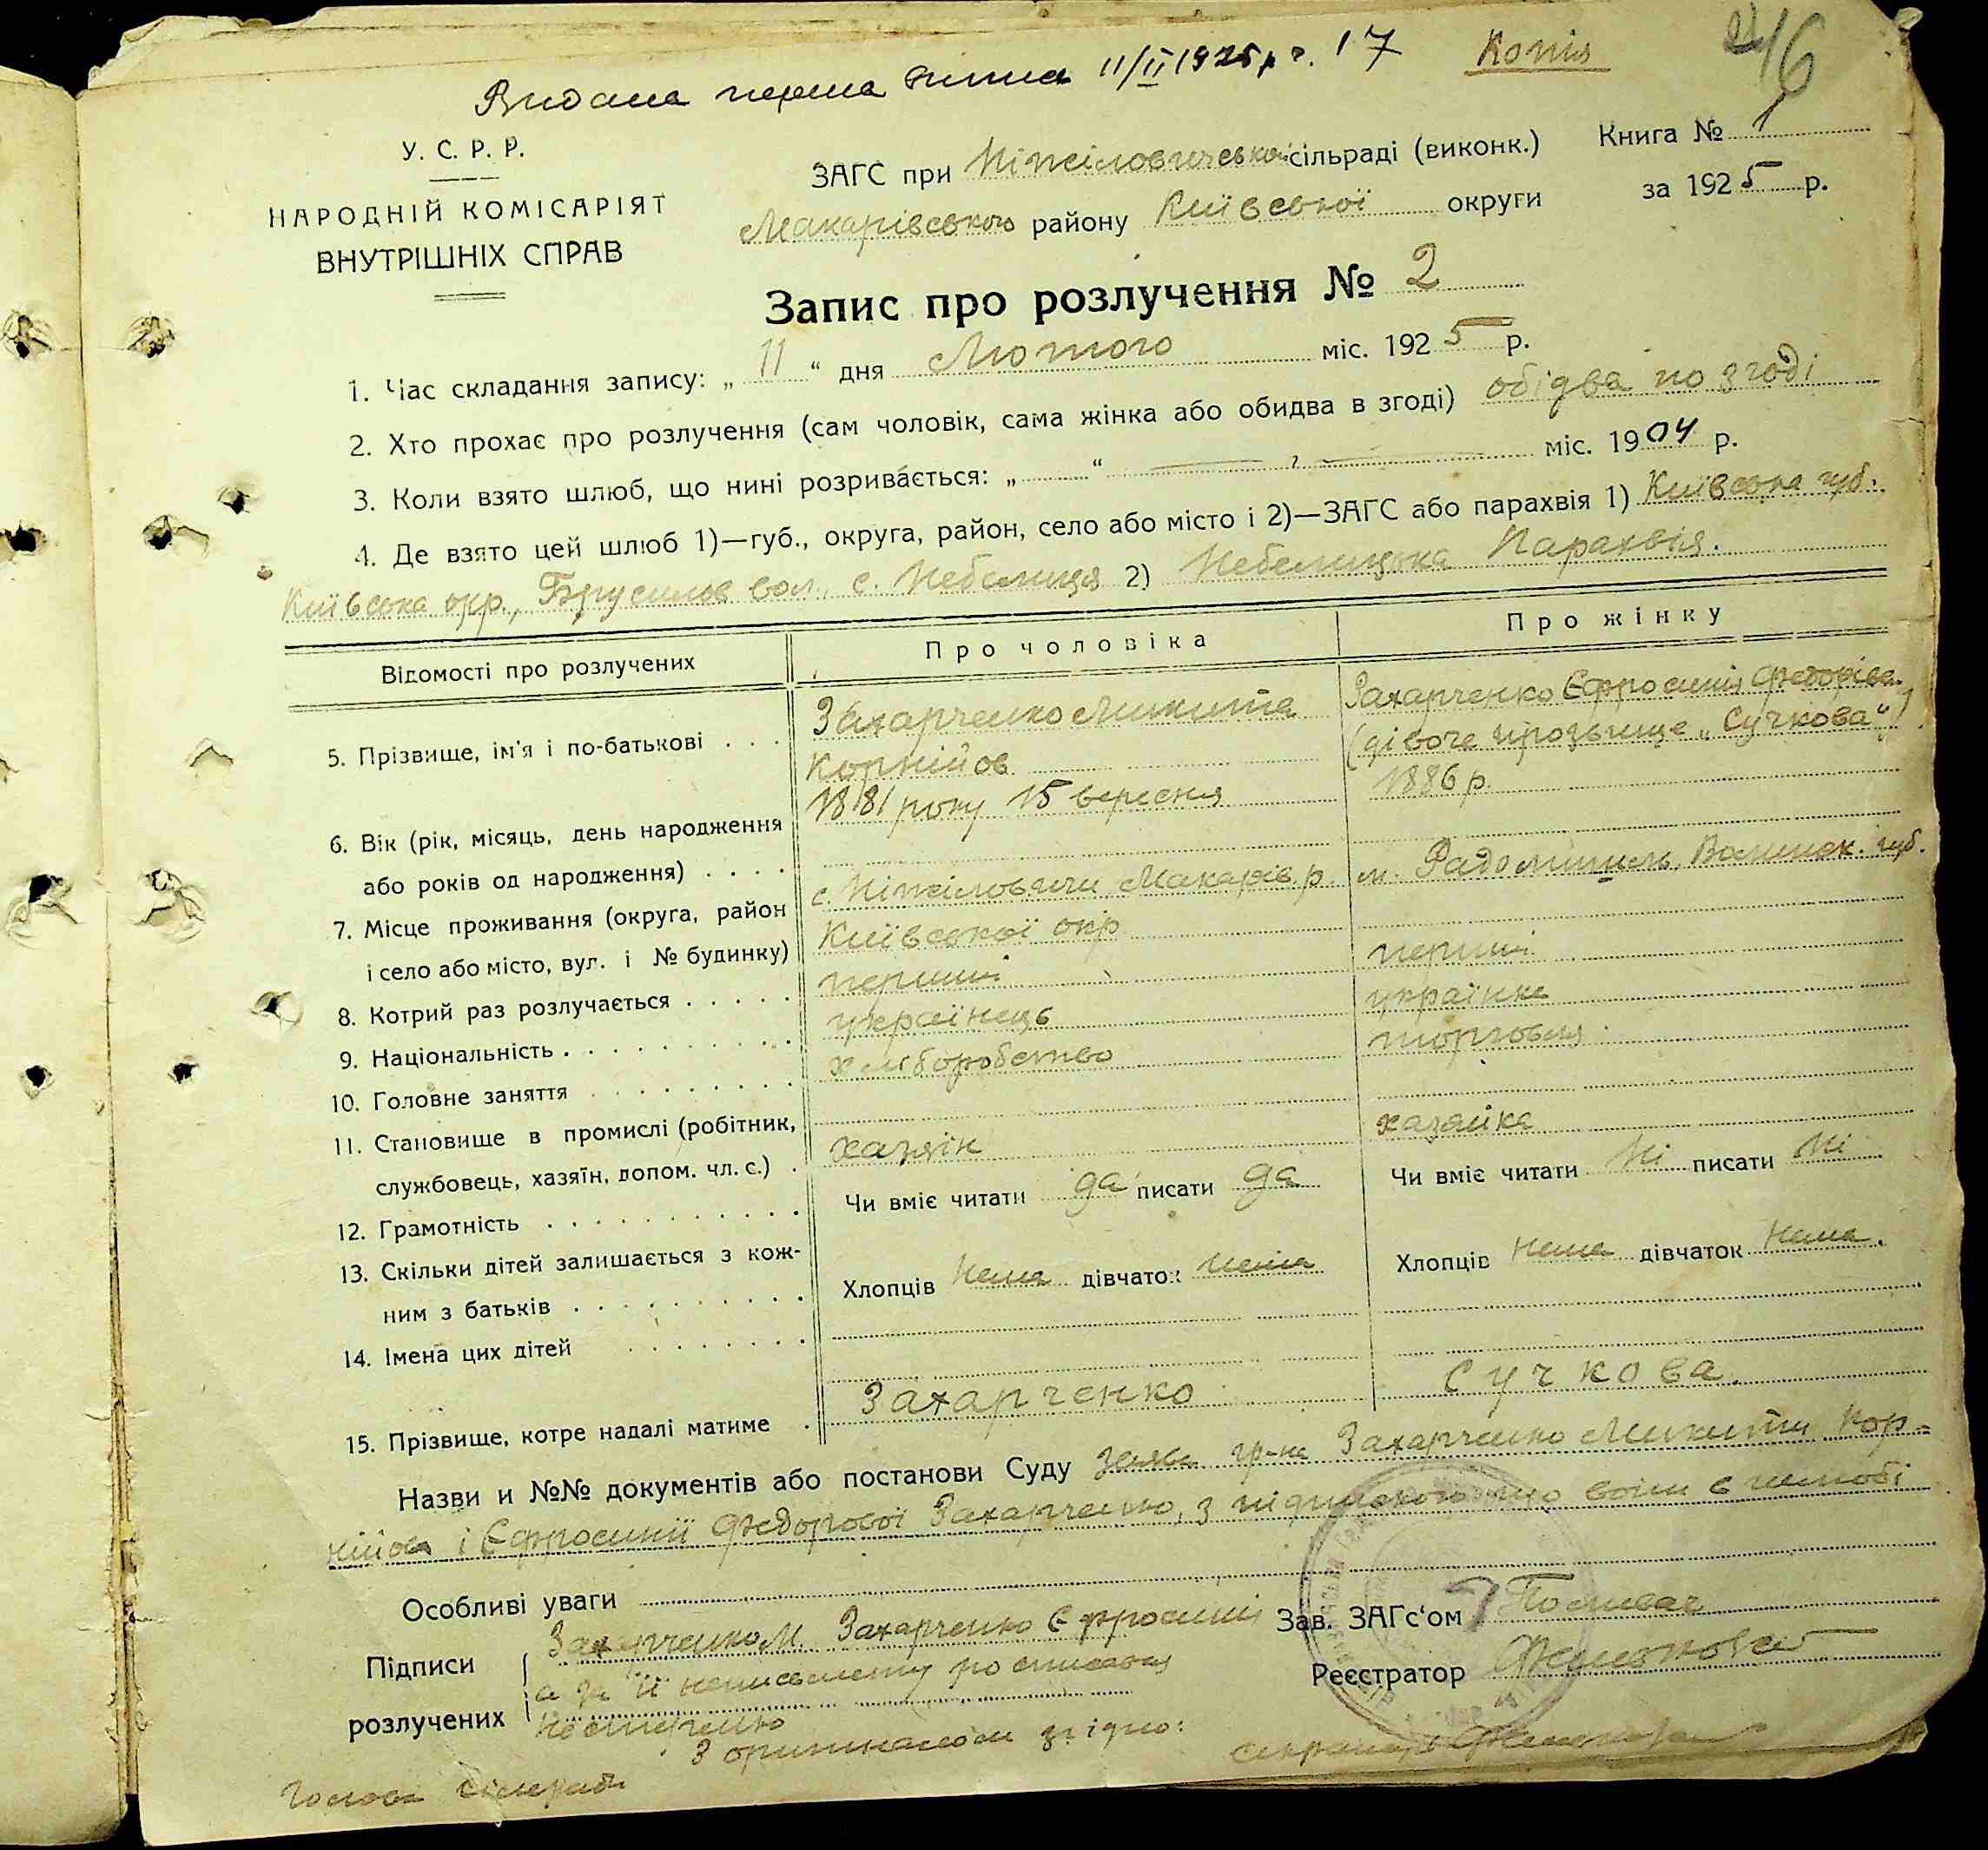 Видана перша виписка 11/II 1925 р. ч. 17 Копія
У. С. Р. Р.
НАРОДНІЙ КОМІСАРІЯТ
ВНУТРІШНІХ СПРАВ
ЗАГС при Ніжіловичської сільраді (виконк.) Книга № 1
Макарівського району Київської округи за 1925 р.
Запис про розлучення № 2
1. Час складання запису: „ 11 “ дня Лютого міс. 1925 р.
2. Хто прохає про розлучення (сам чоловік, сама жінка або обидва в згоді) обідва по згоді
3. Коли взято шлюб, що нині розривається: „ “ — ? — міс. 1904 р.
4. Де взято цей шлюб 1)—губ., округа, район, село або місто і 2)—ЗАГС або парахвія 1) Київська губ.
Київська окр., Брусилов вол., с. Небелиця 2) Небелицька Парахвія.
Відомості про розлучених Про чоловіка Про жінку
5. Прізвище, ім'я і по-батькові . . . Захарченко Микита Корнійов
Захарченко Єфросинія Федорівна (дівоче прозвище „Сучкова“)
6. Вік (рік, місяць, день народження
або років од народження) . . . .
1881 року 15 вересня
1886 р.
7. Місце проживання (округа, район
і село або місто, вул. і № будинку)
с. Ніжіловичи Макарів. р.
Київської окр
м. Радомишль, Волинск. губ.
8. Котрий раз розлучається . . . . . перший перший
9. Національність . . . . . . . . . . українець українка
10. Головне заняття . . . . . . . . . хліборобство торговля
11. Становище в промислі (робітник,
службовець, хазяїн, допом. чл. с.) . хазяїн хазяйка
12. Грамотність . . . . . . . . . . . Чи вміє читати да писати да Чи вміє читати ні писати ні
13. Скільки дітей залишається з кож-
ним з батьків . . . . . . . . . . Хлопців нема дівчаток нема Хлопців нема дівчаток нема.
14. Імена цих дітей . . . . . . . .
15. Прізвище, котре надалі матиме . Захарченко Сучкова.
Назви и №№ документів або постанови Суду заява гр-на Захарченко Микити Кор-
нійов і Єфросинії Федорової Захарченко, з підпискою що вони в шлюбі
Особливі уваги
Підписи
розлучених
Захарченко М. Захарченко Єфросинія
а за її неписьмену росписався
Нестеренко
Зав. ЗАГс'ом
Реєстратор
З оригиналом згідно:
Голова сільради
секретар